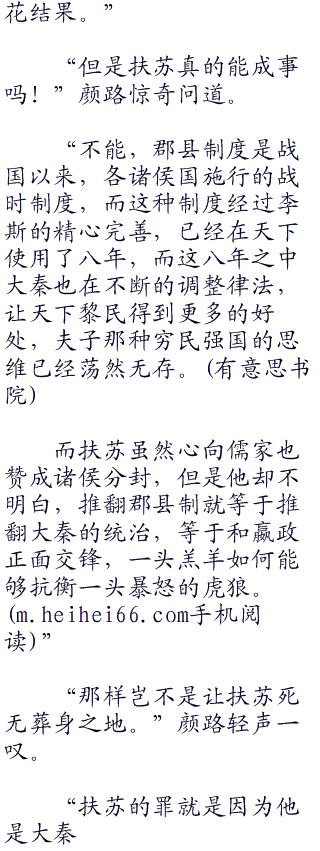 花结果。”
“但是扶苏真的能成事
吗！”颜路惊奇问道。
“不能，郡县制度是战
国以来，各诸侯国施行的战
时制度，而这种制度经过李
斯的精心完善，已经在天下
使用了八年，而这八年之中
大秦也在不断的调整律法，
让天下黎民得到更多的好
处，夫子那种穷民强国的思
维已经荡然无存。(有意思书
院)
而扶苏虽然心向儒家也
赞成诸侯分封，但是他却不
明白，推翻郡县制就等于推
翻大秦的统治，等于和嬴政
正面交锋，一头羔羊如何能
够抗衡一头暴怒的虎狼。
(m.heihei66.com手机阅
读)”
“那样岂不是让扶苏死
无葬身之地。”颜路轻声一
叹。
“扶苏的罪就是因为他
是大秦